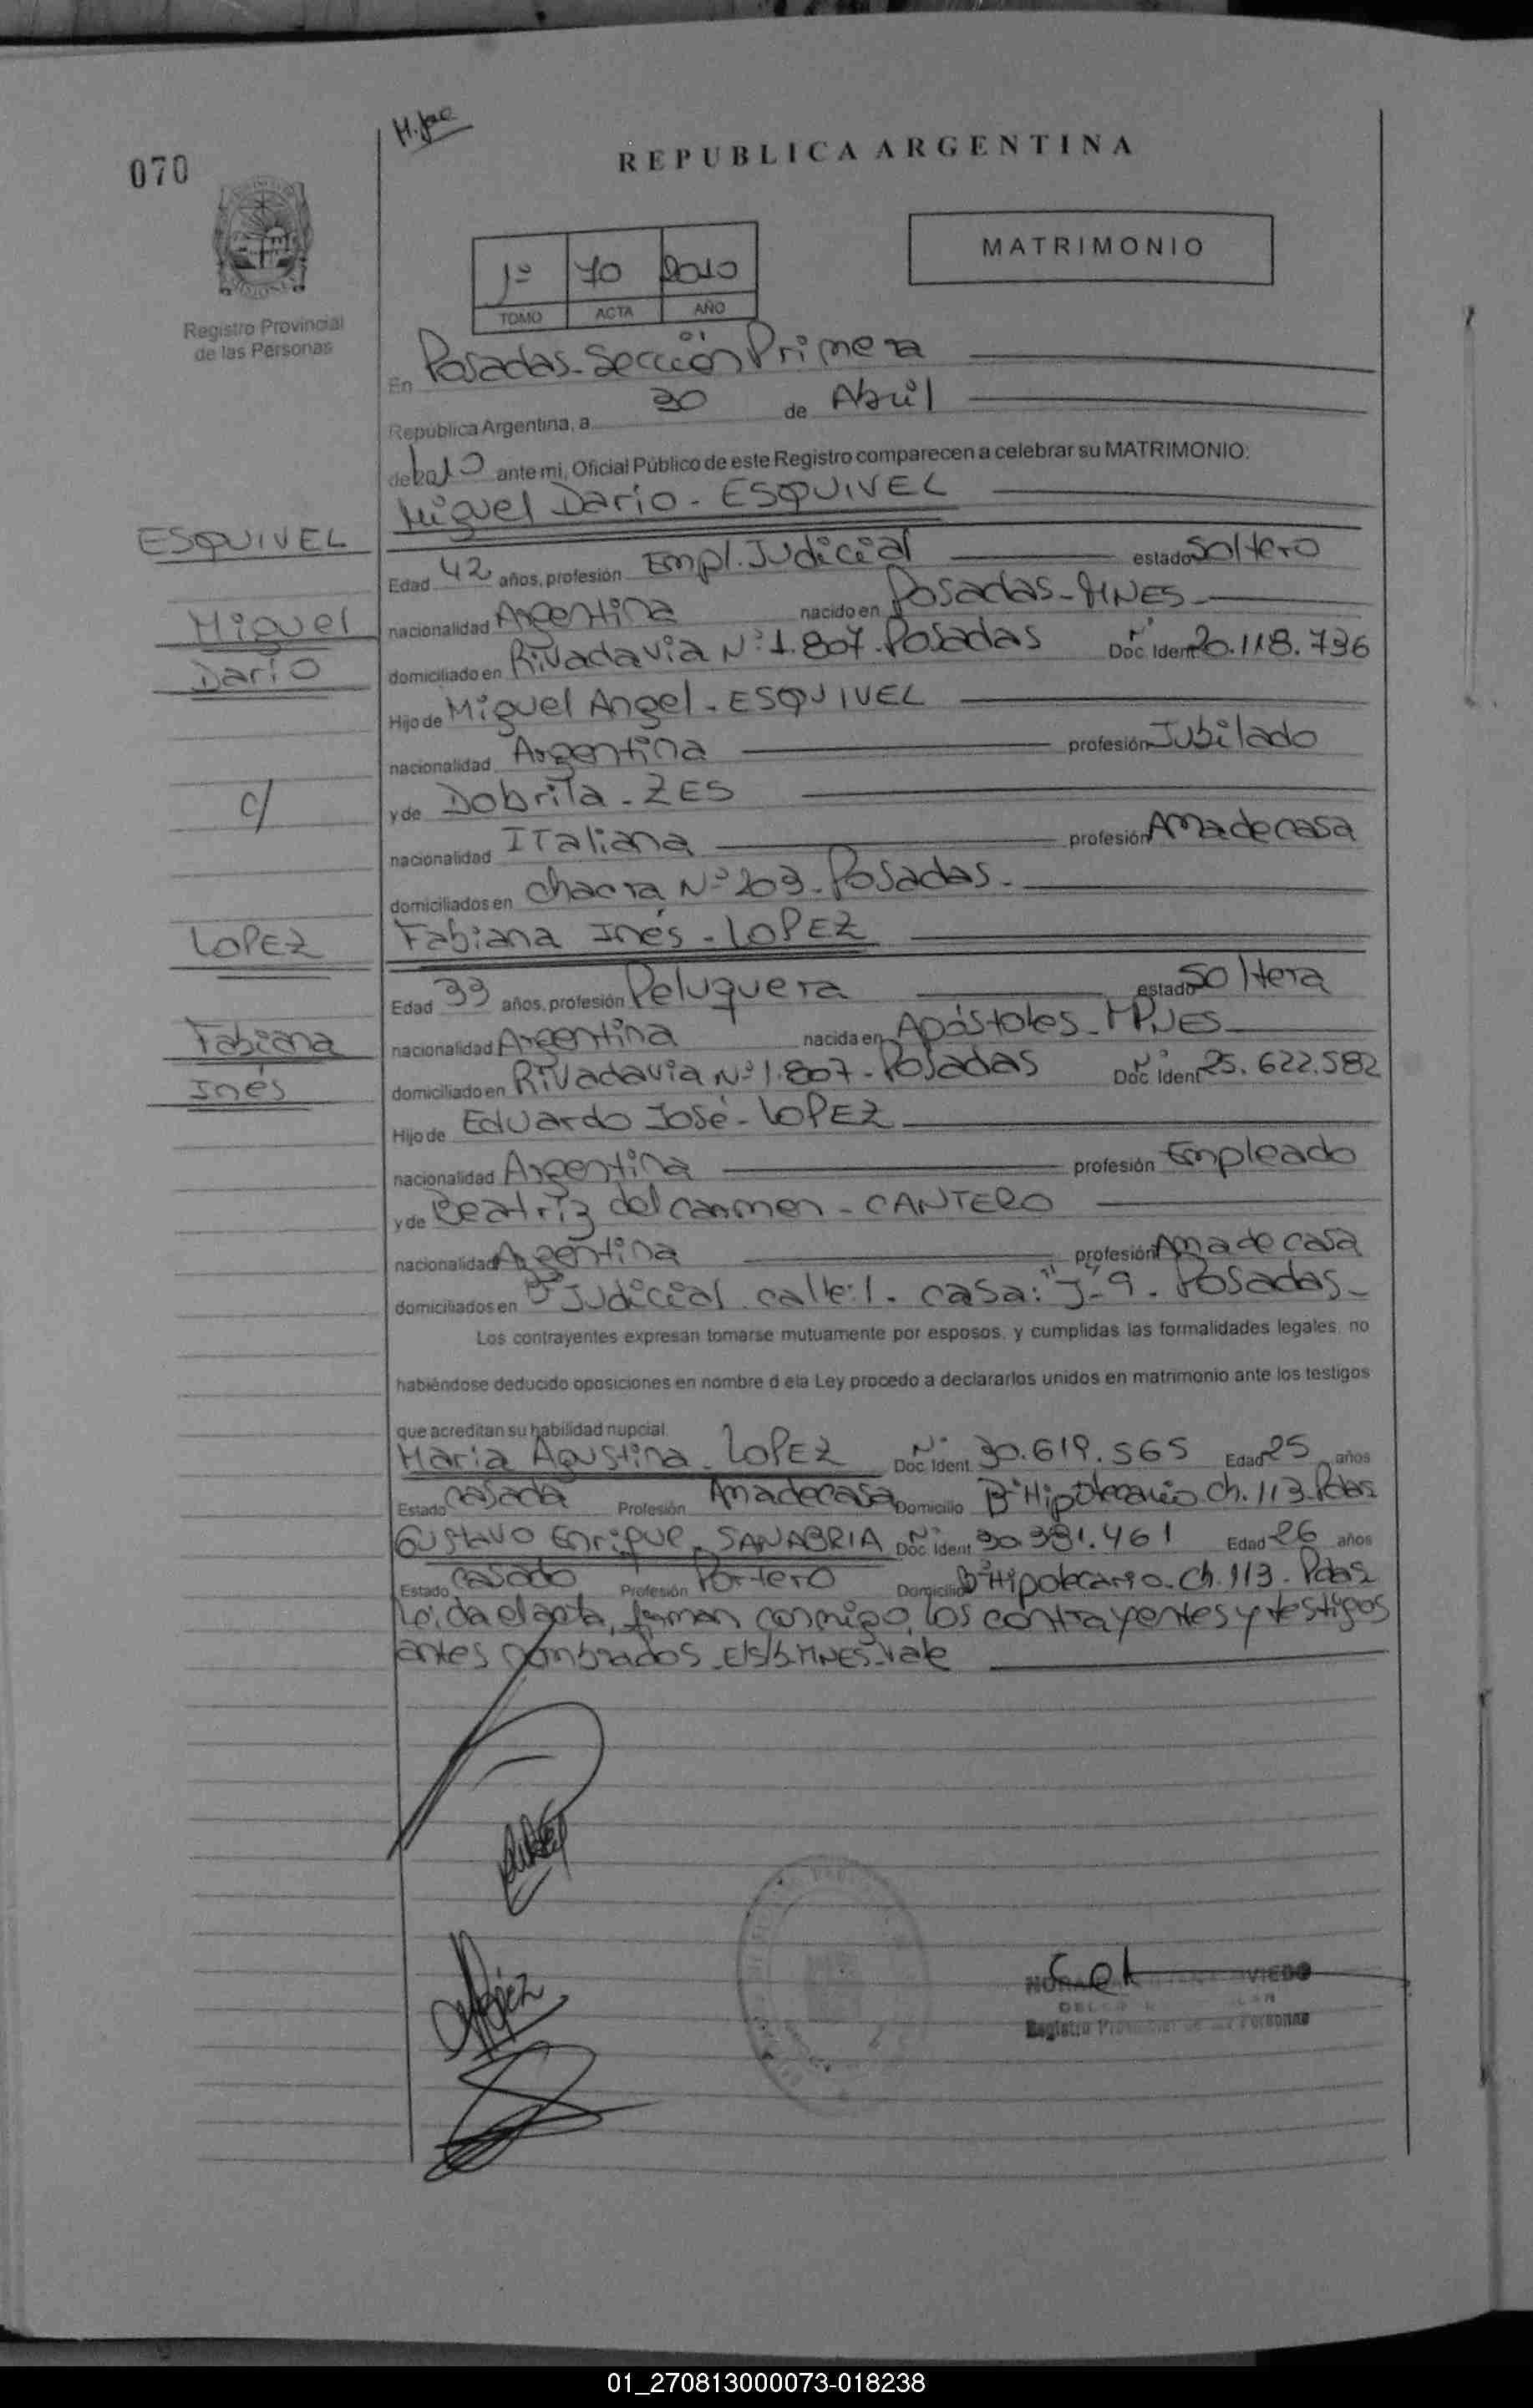 070
REPUBLICA ARGENTINA
MATRIMONIO
1º 70 2010
TOMO ACTA AÑO
Registro Provincial
de las Personas
En Posadas-Sección Primera
República Argentina, a 30 de Abril
de 2010 ante mi, Oficial Público de este Registro comparecen a celebrar su MATRIMONIO:
Miguel Darío - ESQUIVEL
ESQUIVEL
Edad 42 años, profesión Empl. Judicial estado Soltero
Miguel
nacionalidad Argentina nacido en Posadas-MNES-
Darío
domiciliado en Rivadavia Nº 1.807-Posadas Doc. Ident Nº 20.118.736
Hijo de Miguel Angel - ESQUIVEL
nacionalidad Argentina profesión Jubilado
c/
y de Dobrila - ZES
nacionalidad Italiana profesión Ama de casa
domiciliados en Chacra Nº 203-Posadas-
LOPEZ
Fabiana Inés - LOPEZ
Edad 33 años, profesión Peluquera estado Soltera
Fabiana
nacionalidad Argentina nacida en Apóstoles-MNES
Inés
domiciliado en Rivadavia Nº 1.807-Posadas Doc. Ident Nº 25.622.582
Hijo de Eduardo José - LOPEZ
nacionalidad Argentina profesión Empleado
y de Beatriz del Carmen - CANTERO
nacionalidad Argentina profesión Ama de casa
domiciliados en Bº Judicial calle: 1. casa: "J-9. Posadas-
Los contrayentes expresan tomarse mutuamente por esposos, y cumplidas las formalidades legales, no
habiéndose deducido oposiciones en nombre d ela Ley procedo a declararlos unidos en matrimonio ante los testigos
que acreditan su habilidad nupcial.
María Agustina - LOPEZ Doc. Ident. Nº 30.619.565 Edad 25 años
Estado Casada Profesión Ama de casa Domicilio Bº Hipotecario-Ch. 113-Pdas
Gustavo Enrique - SANABRIA Doc. Ident. Nº 30.381.461 Edad 26 años
Estado Casado Profesión Portero Domicilio Bº Hipotecario-Ch. 113-Pdas
Leída el acta, firman conmigo, los contrayentes y testigos
antes nombrados-E/S/b.MNES-vale
Registro Provincial de las Personas
01_270813000073-018238